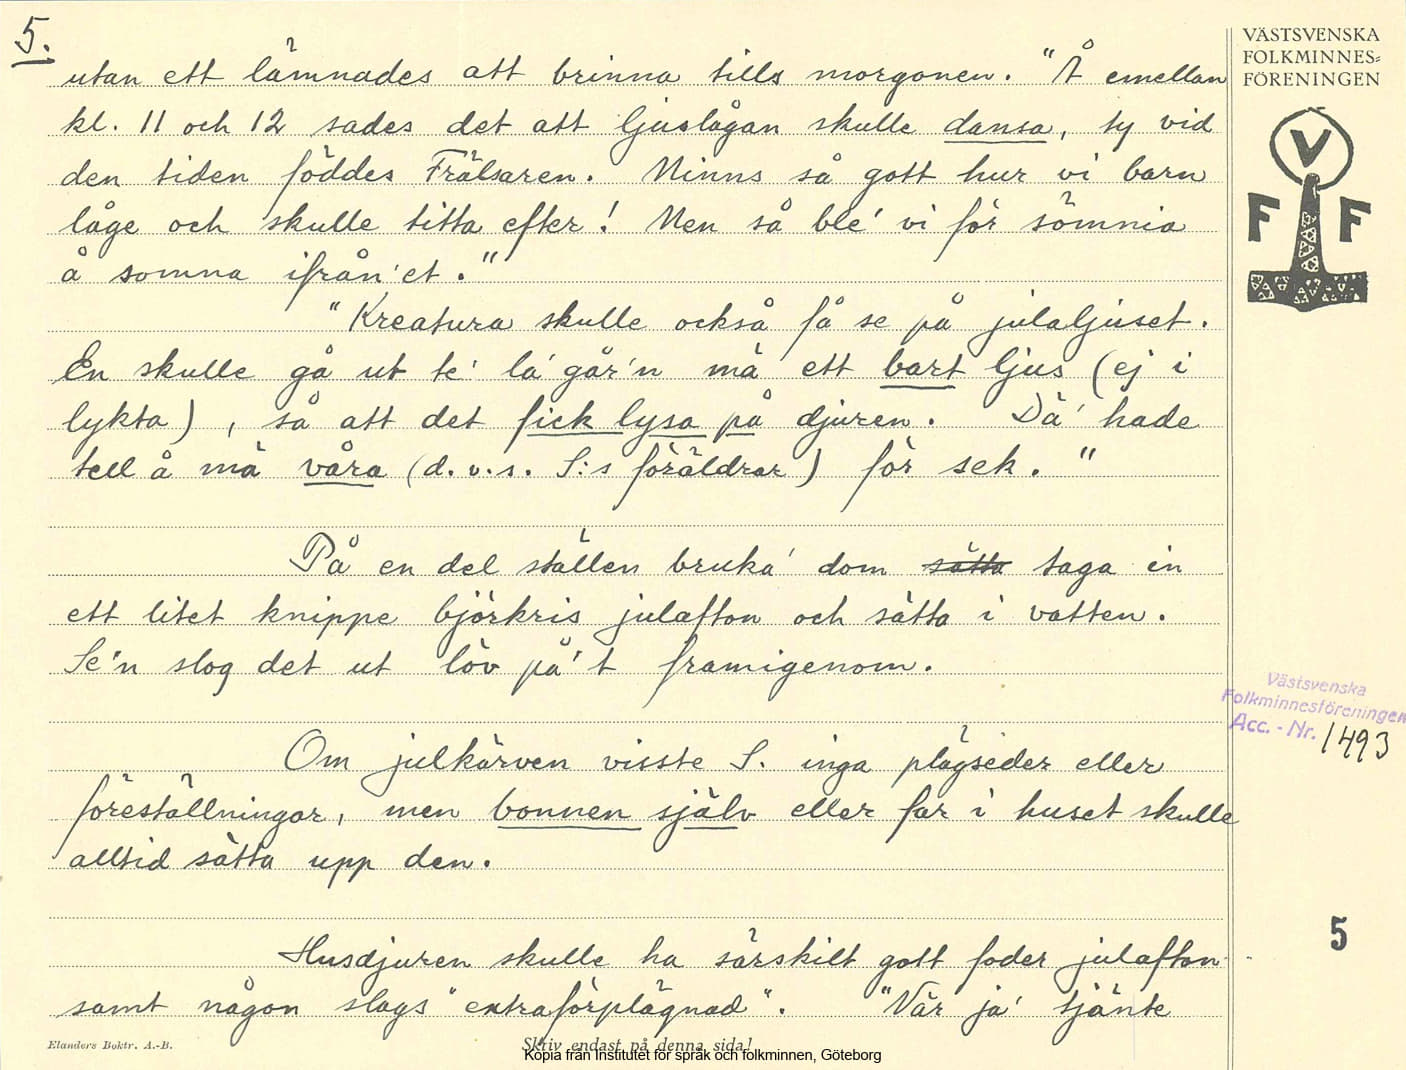 5.
VÄSTSVENSKA
FOLKMINNES=
FÖRENINGEN
V
F F
utan ett lämnades att brinna tills morgonen. "Å emellan
kl. 11 och 12 sades det att ljuslågan skulle dansa, ty vid
den tiden föddes Frälsaren. Minns så gott hur vi barn
låge och skulle titta efter! Men så ble' vi för sömnia
å somna ifrån'et."
"Kreatura skulle också få se på julaljuset.
En skulle gå ut te' la'går'n mä ett bart ljus (ej i
lykta), så att det fick lysa på djuren. Dä' hade
tell å mä våra (d.v.s. S:s föräldrar) för sek."
På en del ställen bruka' dom sätta taga in
ett litet knippe björkris julafton och sätta i vatten.
Se'n slog det ut löv på't framigenom.
Om julkärven visste S. inga plägseder eller
föreställningar, men bonnen själv eller far i huset skulle
alltid sätta upp den.
Husdjuren skulle ha särskilt gott foder julafton
samt någon slags "extraförplägnad". "När ja' tjänte
Västsvenska
Folkminnesföreningen
Acc. - Nr. 1493
5
Elanders Boktr. A.-B.
Skriv endast på denna sida!
Kopia från Institutet för språk och folkminnen, Göteborg